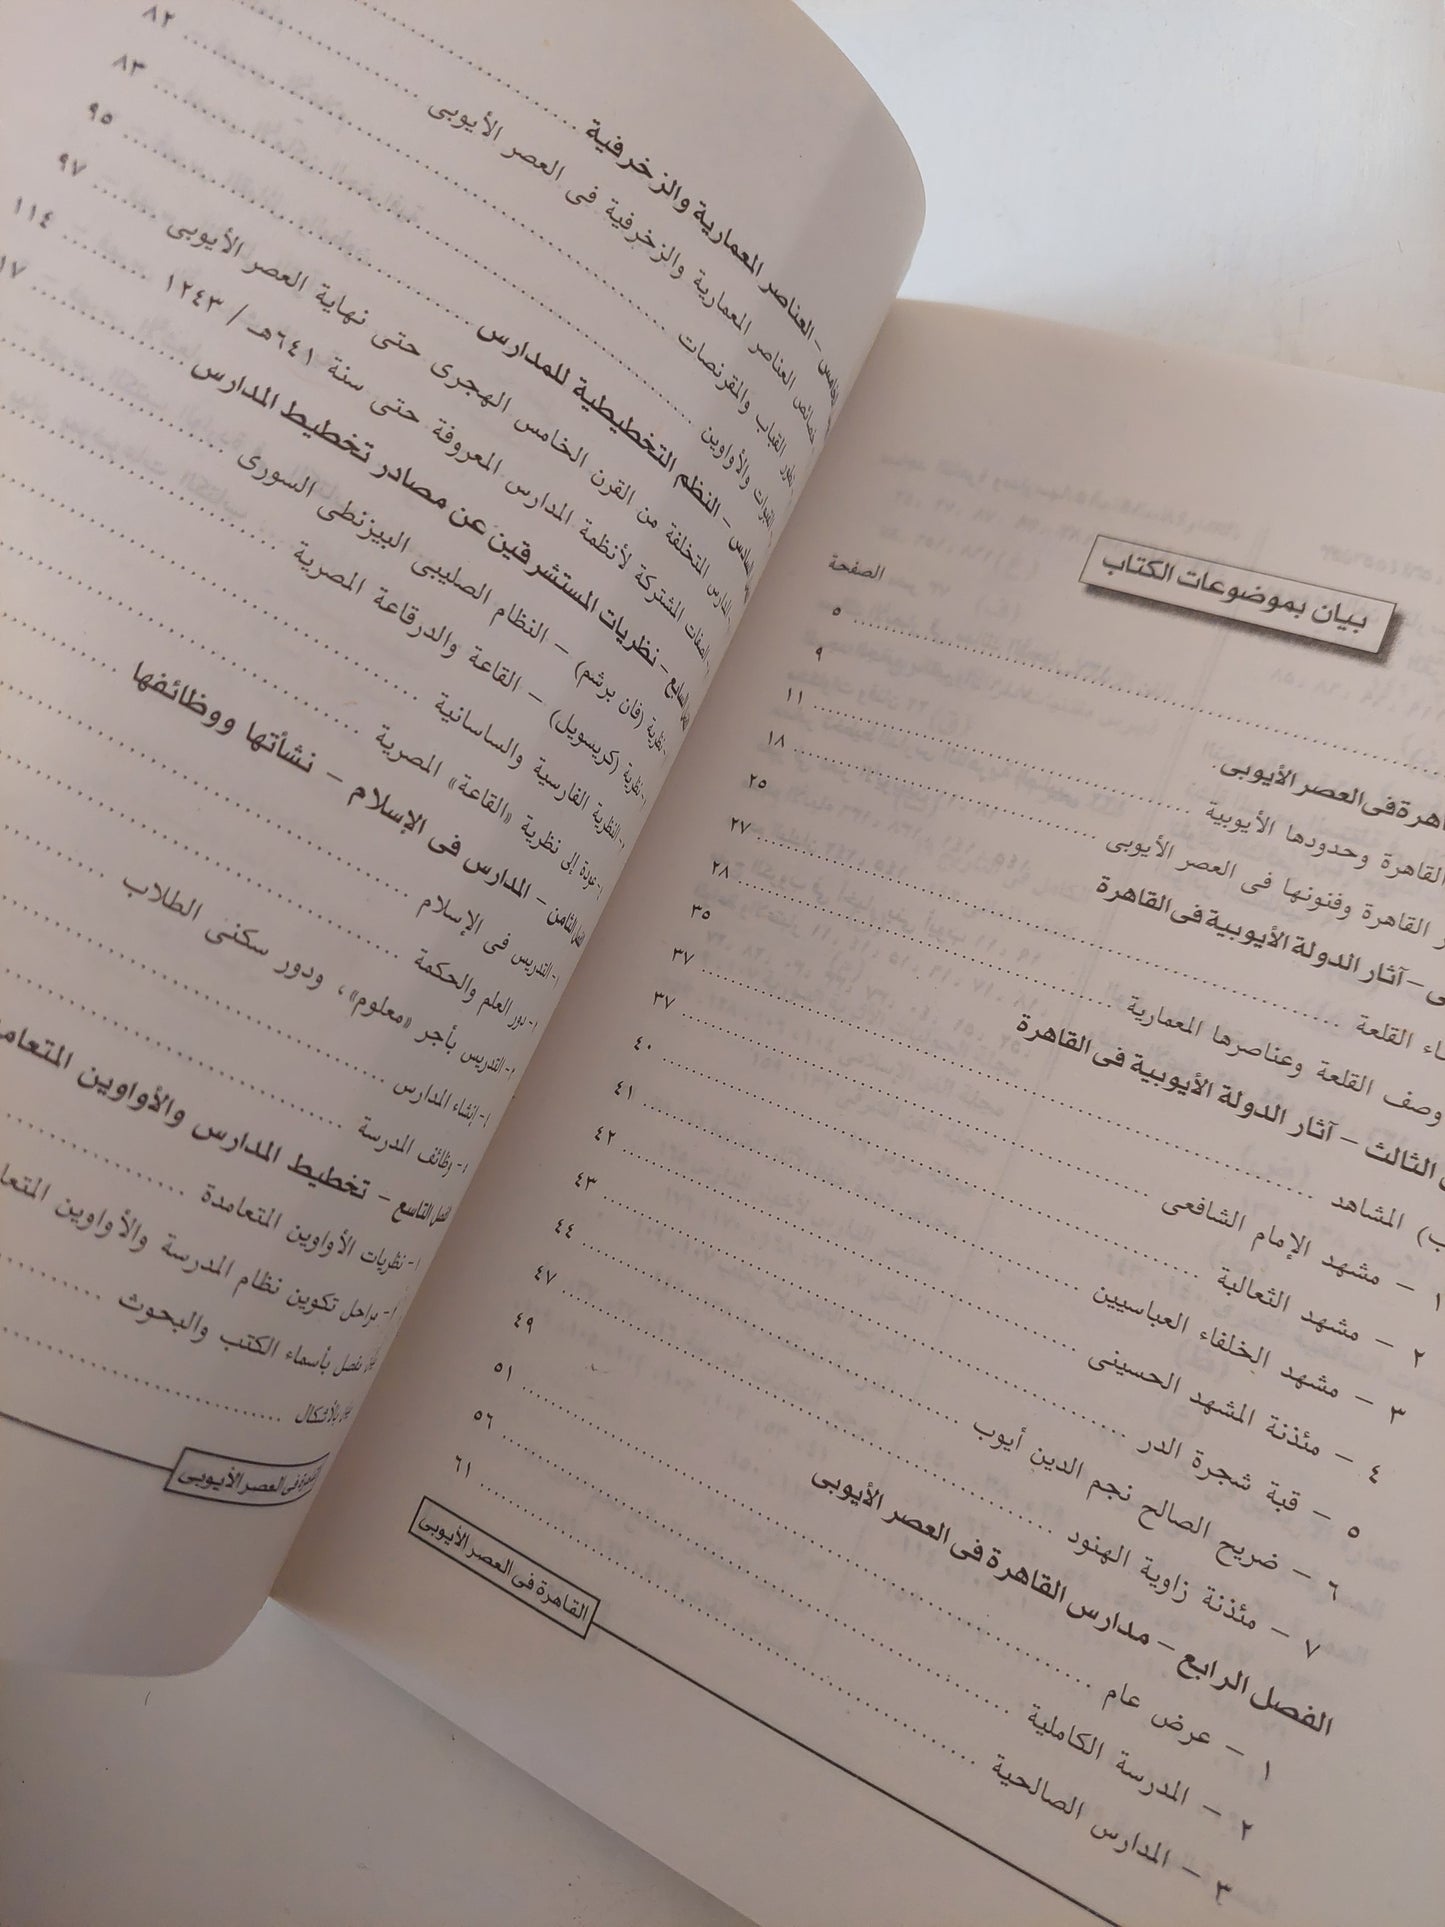 بيان بموضوعات الكتاب
الصفحة
٥
٩
القاهرة فى العصر الأيوبى
القاهرة وحدودها الأيوبية ١١
القاهرة وفنونها فى العصر الأيوبى ١٨
– آثار الدولة الأيوبية فى القاهرة ٢٥
القلعة ٢٧
وصف القلعة وعناصرها المعمارية ٢٨
الثالث – آثار الدولة الأيوبية فى القاهرة ٣٥
المشاهد ٣٧
١ – مشهد الإمام الشافعى ٣٧
٢ – مشهد الثعالبة ٤٠
٣ – مشهد الخلفاء العباسيين ٤١
٤ – مئذنة المشهد الحسينى ٤٢
٥ – قبة شجرة الدر ٤٣
٦ – ضريح الصالح نجم الدين أيوب ٤٤
٧ – مئذنة زاوية الهنود ٤٧
الفصل الرابع – مدارس القاهرة فى العصر الأيوبى ٤٩
١ – عرض عام ٥١
٢ – المدرسة الكاملية ٥٦
٣ – المدارس الصالحية ٦١
القاهرة فى العصر الأيوبى
– العناصر المعمارية والزخرفية
خصائص العناصر المعمارية والزخرفية فى العصر الأيوبى ٨٢
القباب والمقرنصات ٨٣
والأواوين ٩٥
– النظم التخطيطية للمدارس ٩٧
المدارس المتخلفة من القرن الخامس الهجرى حتى نهاية العصر الأيوبى
الصفات المشتركة لأنظمة المدارس المعروفة حتى سنة ٦٤١هـ / ١٢٤٣ ١١٤
السابع – نظريات المستشرقين عن مصادر تخطيط المدارس
نظرية (فان برشم) – النظام الصليبى البيزنطى السورى
نظرية (كريسويل) – القاعة والدرقاعة المصرية
النظرية الفارسية والساسانية
عودة إلى نظرية «القاعة» المصرية
الثامن – المدارس فى الإسلام – نشأتها ووظائفها
التدريس فى الإسلام
دور العلم والحكمة
التدريس بأجر «معلوم»، ودور سكنى الطلاب
إنشاء المدارس
وظائف المدرسة
التاسع – تخطيط المدارس والأواوين
نظريات الأواوين المتعامدة
مراحل تكوين نظام المدرسة والأواوين
بأسماء الكتب والبحوث
بالأشكال
فى العصر الأيوبى